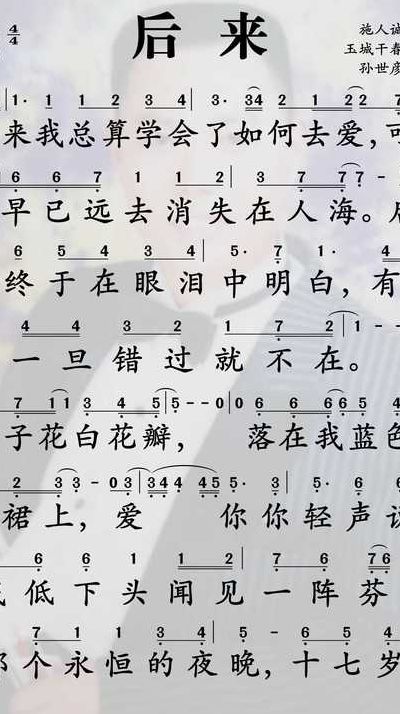 4/4
后来
施人诚
玉城千春
孙世彦
1· 1 2 3 4 | 3· 34 2 1 2 22 7
来我总算学会了如何去爱,
6 6 7 1 2 1 7 | 3 7 7 77 -
早已远去消失在人海。
6 5 4 3 4 | 5· 7 1· 4
终于在眼泪中明白,有
4 4 3 2 1 7 2 | 1 - - - |
一旦错过就不在。
7 11 3 4 5 | 5 - - 0 | 0 6 6 6 66 5 4
子花白花瓣, 落在我蓝色
2 3 3 - 03 | 344 45 5· 3 | 5· 5
裙上,爱 你你轻声
6 6 1 1 2 7 6 76
低下头闻见一阵芬
7 1 1 3 4 | 5· - 6 5 4
个永恒的夜晚,十七岁